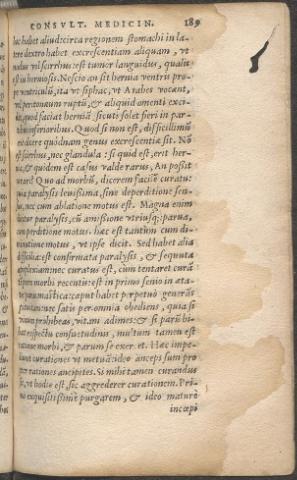 CONSVLT. MEDICIN. 189
hoc habet aliud: circa regionem stomachi in la-
tere dextro habet excrescentiam aliquam, vt
nodus vel scirrhus: est tumor languidus, qualis
est in herniosis. Nescio an sit hernia ventris pro-
pe ventriculũ, ita vt siphac, vt Arabes vocant,
vel peritonæum ruptũ, & aliquid amenti exci-
quod faciat herniã: sicuti solet fieri in par-
tibus inferioribus. Quod si non est, difficillimũ
reddere quódnam genus excrescentiæ sit. Nõ
est scirrhus, nec glandula: si quid est, erit her-
nia, & quidem est casus valde rarus. An possit
Quo ad morbũ, dicerem faciłè curatu:
paralysis leuissima, sine deperditione sen-
sus, nec cum ablatione motus est. Magna enim
paralysis, cũ amissione vtriusq; parua,
cum perditione motus: hæc est tantùm cum di-
minutione motus, vt ipse dicit. Sed habet alia
est confirmata paralysis, & sequuta
nec curatus est, cùm tentaret curã
morbi recenti: est in primo senio in æta-
te pneumatica: caput habet perpetuò generãs
nec satis per omnia obediens, quia si
vinum prohibeas, vitam adimes: & si parũ bi-
bat respectu consuetudinis, multum tamen est
ratione morbi, & parum se exercet. Hæc impe-
diunt curationes vt metuã: ideo anceps sum pro-
pter rationes ancipites. Si mihi tamen curandus
vt hodie est, sic aggrederer curationem. Pri-
mo exquisitissimè purgarem, & ideo maturè
incœpi